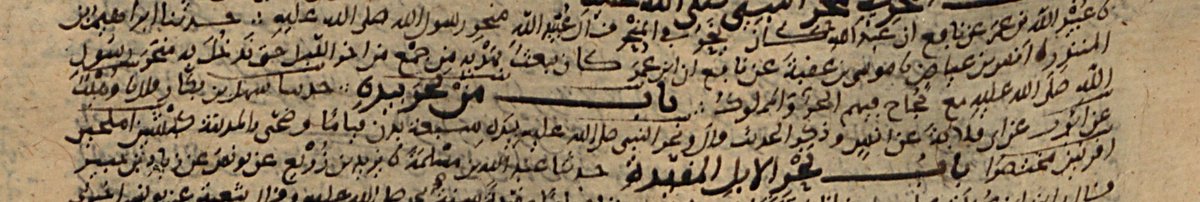 النحر في منحر النبي صلى الله عليه
عبيد الله بن عمر عن نافع ان عبد الله كان ينحر في المنحر قال عبيد الله منحر رسول الله صلى الله عليه حدثنا ابراهيم بن
المنذر نا انس بن عياض نا موسى بن عقبة عن نافع ان ابن عمر كان يبعث بهديه من جمع من اخر الليل حتى يدخل به منحر رسول
الله صلى الله عليه مع حجاج فيهم الحر والمملوك باب من نحر بيده حدثنا سهل بن بكار نا وهيب
عن ايوب عن ابي قلابة عن انس وذكر الحديث قال ونحر النبي صلى الله عليه بيده سبعة بدن قياما وضحى بالمدينة كبشين املحين
اقرنين مختصرا باب نحر الابل المقيدة حدثنا عبد الله بن مسلمة نا يزيد بن زريع عن يونس عن زياد بن جبير
صلى الله عليه وقال شعبة عن يونس